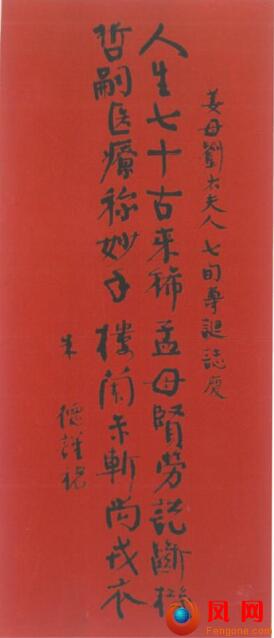 姜母劉太夫人七旬尊誕誌慶
人生七十古来稀孟母賢勞説斷機
哲嗣医療称妙手樓蘭未斬尚戎衣
朱德謹祝
凤网
Fengone.com